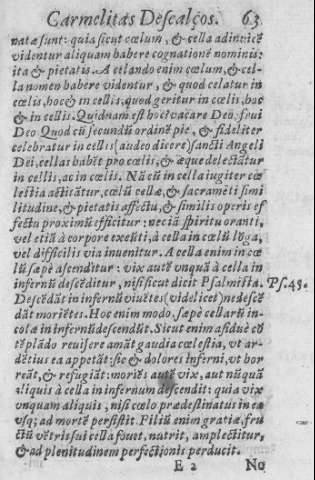 Carmelitas Descalços. 63
natæ sunt: quia sicut cœlum, & cella ad inuicē
videntur aliquam habere cognationē nominis:
ita & pietatis. A celando enim cœlum, & cel-
la nomen habere videntur, & quod celatur in
cœlis, hoc & in cellis, quod geritur in cœlis, hoc
& in cellis. Quidnam est hoc? vacare Deo, frui
Deo Quod cū secundū ordinē pie, & fideliter
celebratur in cellis (audeo dicere) sancti Angeli
Dei, cellas habēt pro cœlis, & æque delectātur
in cellis, ac in cœlis. Nā cū in cella iugiter cœ
lestia actitātur, cœlū cellæ, & sacramēti simi
litudine, & pietatis affectu, & similis operis ef
fectu proximū efficitur: nec iā spiritu oranti,
vel etiā à corpore exeūti, à cella in cœlū lōga,
vel difficilis via inuenitur. A cella enim in cœ
lū sæpè ascenditur: vix autē vnquā à cella in
infernū descēditur, nisi sicut dicit Psalmista. Ps. 45.
Descēdāt in infernū viuētes (videlicet) ne descē
dāt moriētes. Hoc enim modo, sæpè cellarū in-
colæ in infernū descendūt. Sicut enim asiduè cō
tēplādo reuisere amāt gaudia cœlestia, vt ar-
dētius ea appetāt: sic & dolores inferni, vt hor
reāt, & refugiāt: moriēs autē vix, aut nūquā
aliquis à cella in infernum descendit: quia vix
vnquam aliquis, nisi cœlo prædestinatus in ea
vsq; ad mortē persistit. Filiū enim gratiæ, fru
ctū vētris sui cella fouet, nutrit, amplectitur,
& ad plenitudinem perfectionis perducit.
E 2 No